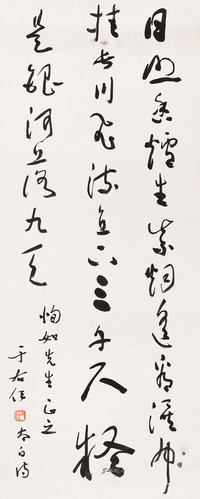 日照香爐生紫烟遥看瀑布
挂長川飛流直下三千尺疑
是銀河落九天
恂如先生正之
太白詩
于右任